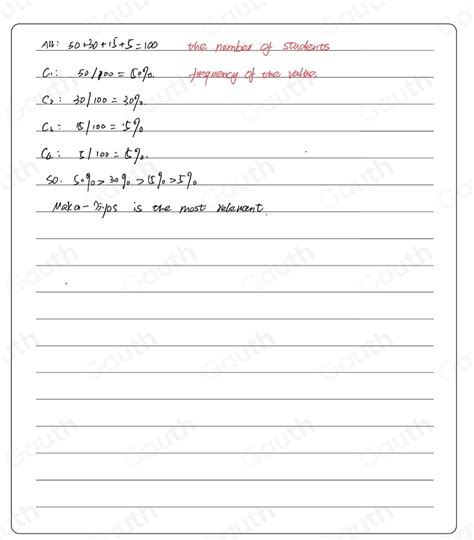 All: 50+30+15+5=100 the number of students
C₁: 50/100=50%. frequency of the value.
C₂: 30/100=30%.
C₃: 15/100=15%
C₄: 5/100=5%.
so. 50%>30%>15%>5%.
is the most relevant.